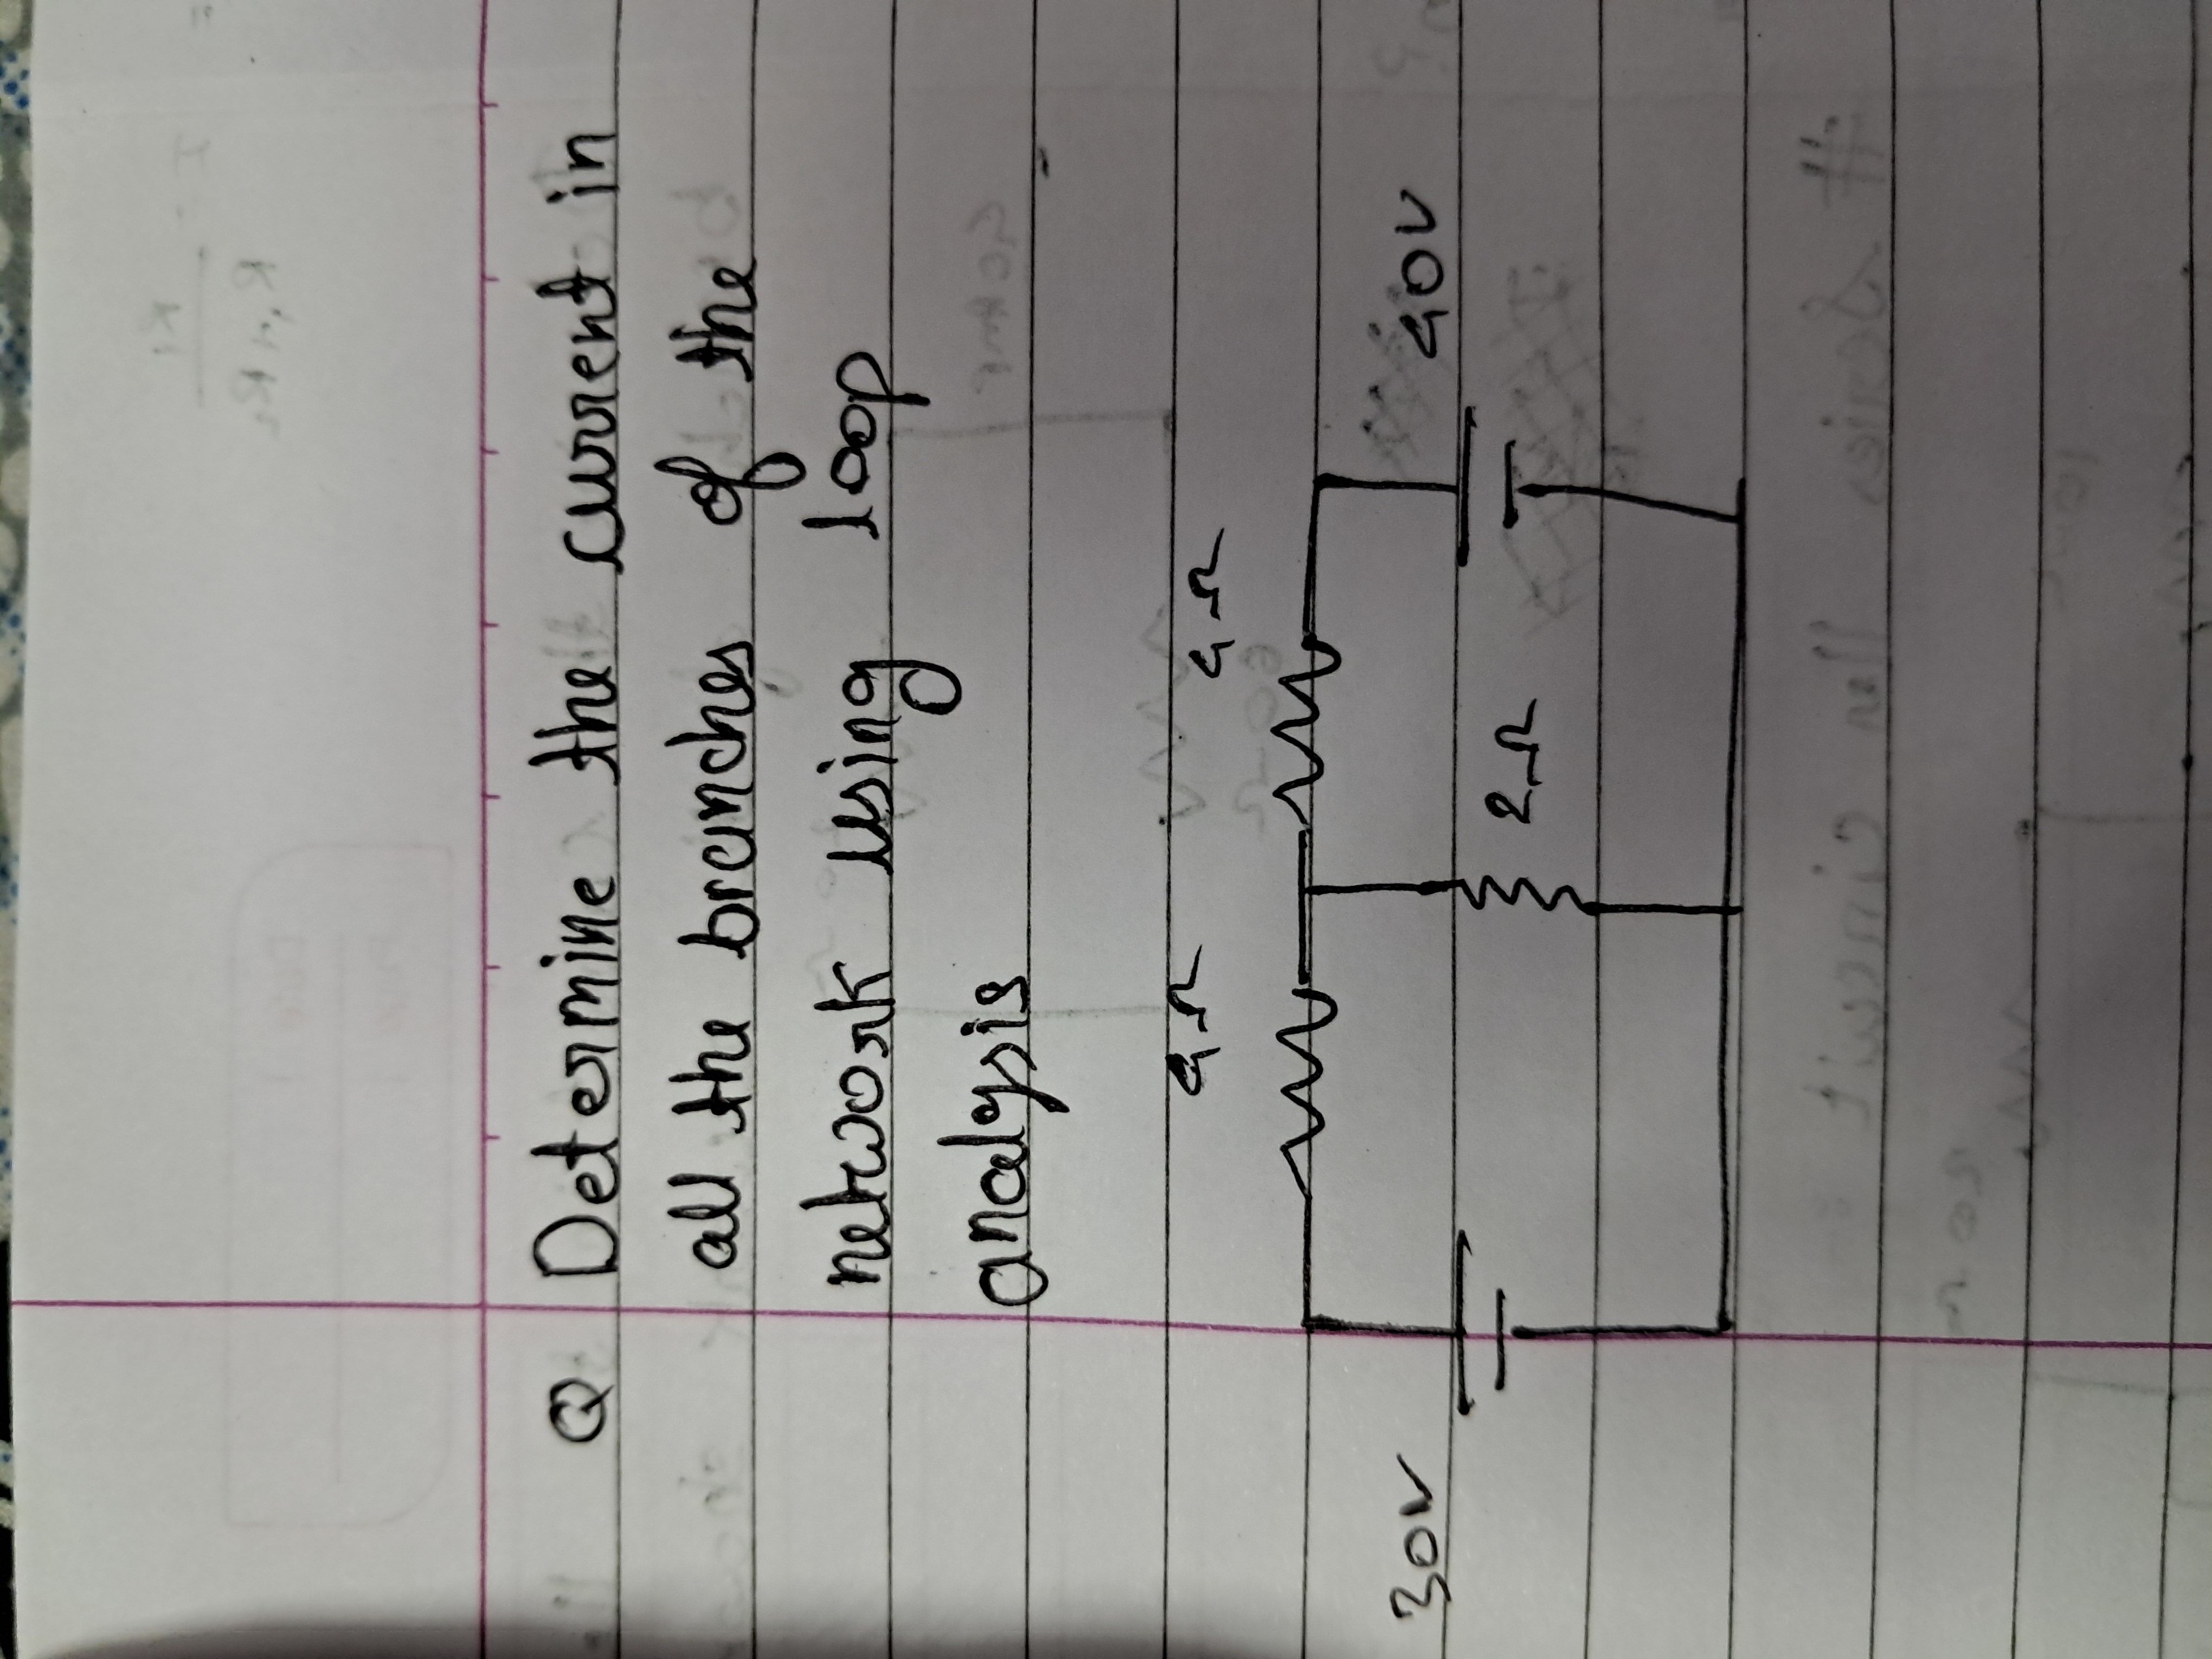 Q Determine the current in
all the branches of the
network using loop
analysis
4Ω 4Ω
30V 40V
2Ω